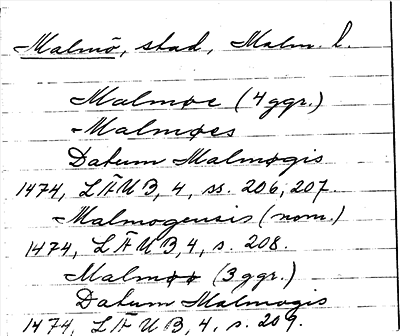 Malmö, stad, Malm. l.
Malmøe (4 ggr.)
Malmøes
Datum Malmøgis
1474, LÄUB, 4, ss. 206, 207.
Malmogensis (nom.)
1474, LÄUB, 4, s. 208.
Malmøø (3 ggr.)
Datum Malmogis
1474, LÄUB, 4, s. 209.